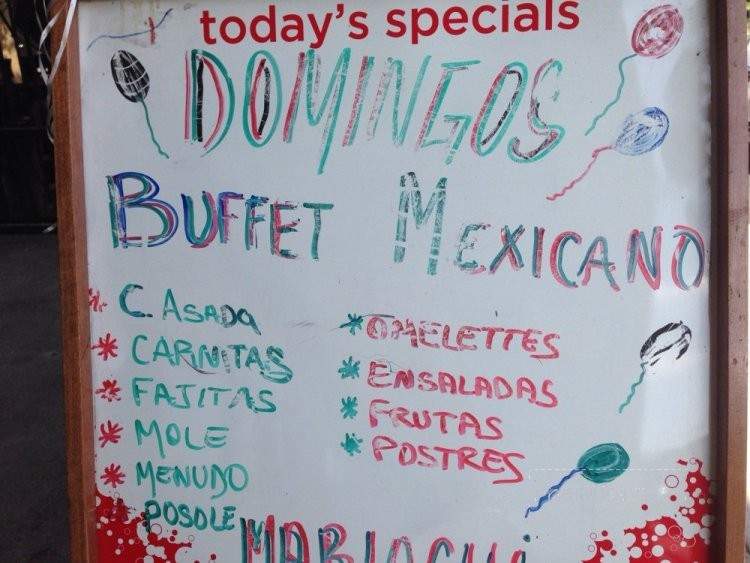 today's specials
DOMINGOS
BUFFET MEXICANO
* C. ASADA
* CARNITAS
* FAJITAS
* MOLE
* MENUDO
* POSOLE
* OMELETTES
* ENSALADAS
* FRUTAS
* POSTRES
MARIACHI